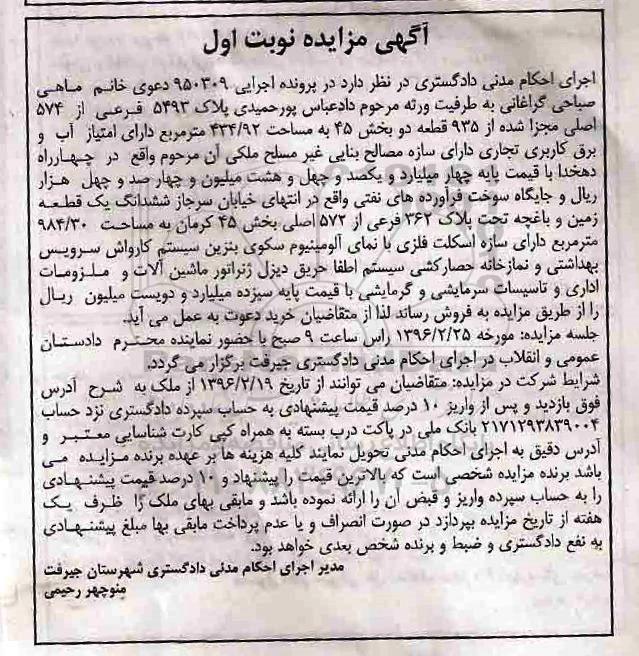 آگهی مزایده نوبت اول
اجرای احکام مدنی دادگستری در نظر دارد در پرونده اجرایی ۹۵۰۳۰۹ دعوی خانم ماهی
صباحی گراغانی به طرفیت ورثه مرحوم دادعباس پورحمیدی پلاک ۵۴۹۳ فرعی از ۵۷۴
اصلی مجزا شده از ۹۳۵ قطعه دو بخش ۴۵ به مساحت ۴۳۴/۹۲ مترمربع دارای امتیاز آب و
برق کاربری تجاری دارای سازه مصالح بنایی غیر مسلح ملکی آن مرحوم واقع در چهارراه
دهخدا با قیمت پایه چهار میلیارد و یکصد و چهل و هشت میلیون و چهار صد و چهل هزار
ریال و جایگاه سوخت فرآورده های نفتی واقع در انتهای خیابان سرجاز ششدانگ یک قطعه
زمین و باغچه تحت پلاک ۳۶۲ فرعی از ۵۷۲ اصلی بخش ۴۵ کرمان به مساحت ۹۸۴/۳۰
مترمربع دارای سازه اسکلت فلزی با نمای آلومینیوم سکوی بنزین سیستم کارواش سرویس
بهداشتی و نمازخانه حصارکشی سیستم اطفا حریق دیزل ژنراتور ماشین آلات و ملزومات
اداری و تاسیسات سرمایشی و گرمایشی با قیمت پایه سیزده میلیارد و دویست میلیون ریال
را از طریق مزایده به فروش رساند لذا از متقاضیان خرید دعوت به عمل می آید.
جلسه مزایده: مورخه ۱۳۹۶/۲/۲۵ راس ساعت ۹ صبح با حضور نماینده محترم دادستان
عمومی و انقلاب در اجرای احکام مدنی دادگستری جیرفت برگزار می گردد.
شرایط شرکت در مزایده: متقاضیان می توانند از تاریخ ۱۳۹۶/۲/۱۹ از ملک به شرح آدرس
فوق بازدید و پس از واریز ۱۰ درصد قیمت پیشنهادی به حساب سپرده دادگستری نزد حساب
۲۱۷۱۲۹۳۸۳۹۰۰۴ بانک ملی در پاکت درب بسته به همراه کپی کارت شناسایی معتبر و
آدرس دقیق به اجرای احکام مدنی تحویل نمایند کلیه هزینه ها بر عهده برنده مزایده می
باشد برنده مزایده شخصی است که بالاترین قیمت را پیشنهاد و ۱۰ درصد قیمت پیشنهادی
را به حساب سپرده واریز و قبض آن را ارائه نموده باشد و مابقی بهای ملک را ظرف یک
هفته از تاریخ مزایده بپردازد در صورت انصراف و یا عدم پرداخت مابقی بها مبلغ پیشنهادی
به نفع دادگستری و ضبط و برنده شخص بعدی خواهد بود.
مدیر اجرای احکام مدنی دادگستری شهرستان جیرفت
منوچهر رحیمی